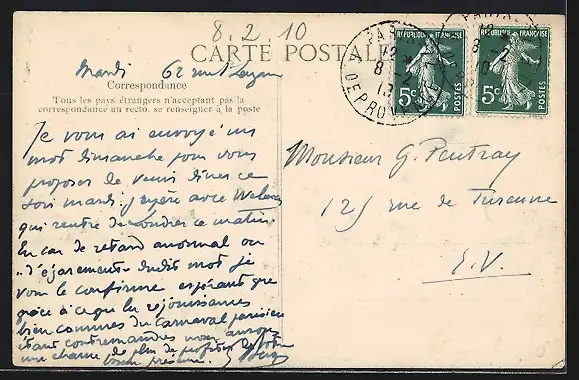 8.2.10
CARTE POSTALE
Mardi 62 rue
Correspondance
Tous les pays étrangers n'acceptant pas la
correspondance au recto, se renseigner à la poste
Je vous ai envoyé un
mot dimanche pour vous
proposer de venir dîner ce
soir mardi j'espère avec
qui rentre de Londres ce matin.
En cas de retard anormal ou
"d'égarement" dudit mot je
vous le confirme espérant que
grâce à ce que les réjouissances
bien connues du Carnaval parisien
étant contremandées nous aurons
une chance de plus de profiter de votre
bonne présence.
RÉPUBLIQUE FRANÇAISE
5c
POSTES
RÉPUBLIQUE FRANÇAISE
5c
POSTES
Monsieur G.
125 rue de Turenne
E.V.